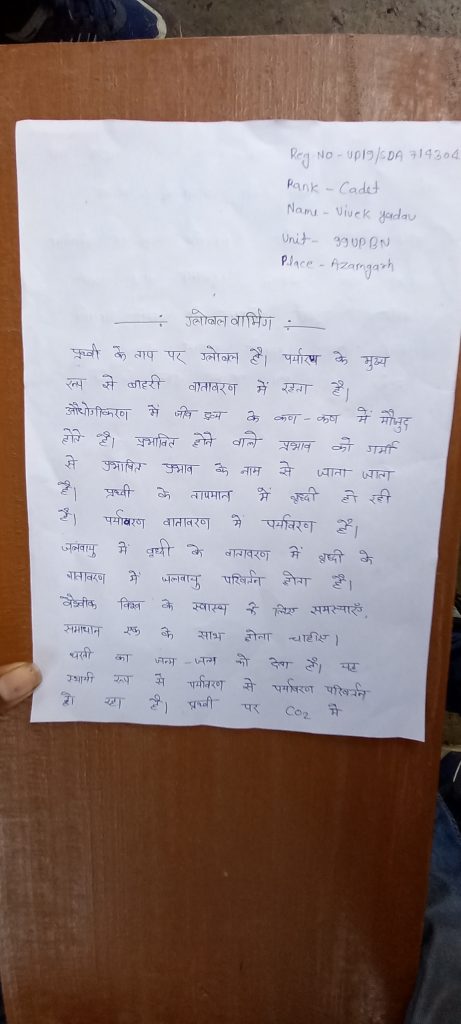 Reg No - UP19/SDA 714304
Rank - Cadet
Name - Vivek yadav
Unit - 99UPBN
Place - Azamgarh
ग्लोबल वार्मिंग
पृथ्वी के ताप पर ग्लोबल है। पर्यावरण के मुख्य
रूप से बाहरी वातावरण में रहता है।
औधोगीकरण में जीव द्रव्य के कण - कण में मौजुद
होते है। प्रभावित होने वाले प्रभाव को गर्मी
से प्रभावित प्रभाव के नाम से जाना जाता
है। प्रथ्वी के तापमान में वृध्दी हो रही
है। पर्यावरण वातावरण में पर्यावरण है।
जलवायु में वृध्दी के वातावरण में वृध्दी के
वातावरण में जलवायु परिवर्तन होता है।
वैश्वीक विश्व के स्वास्थ के लिए समस्याएँ,
समाधान एक के साथ होना चाहीए।
धरती का जन्म - जन्म को देता है। यह
स्थायी रूप से पर्यावरण से पर्यावरण परिवर्तन
हो रहा है। प्रथ्वी पर CO2 में